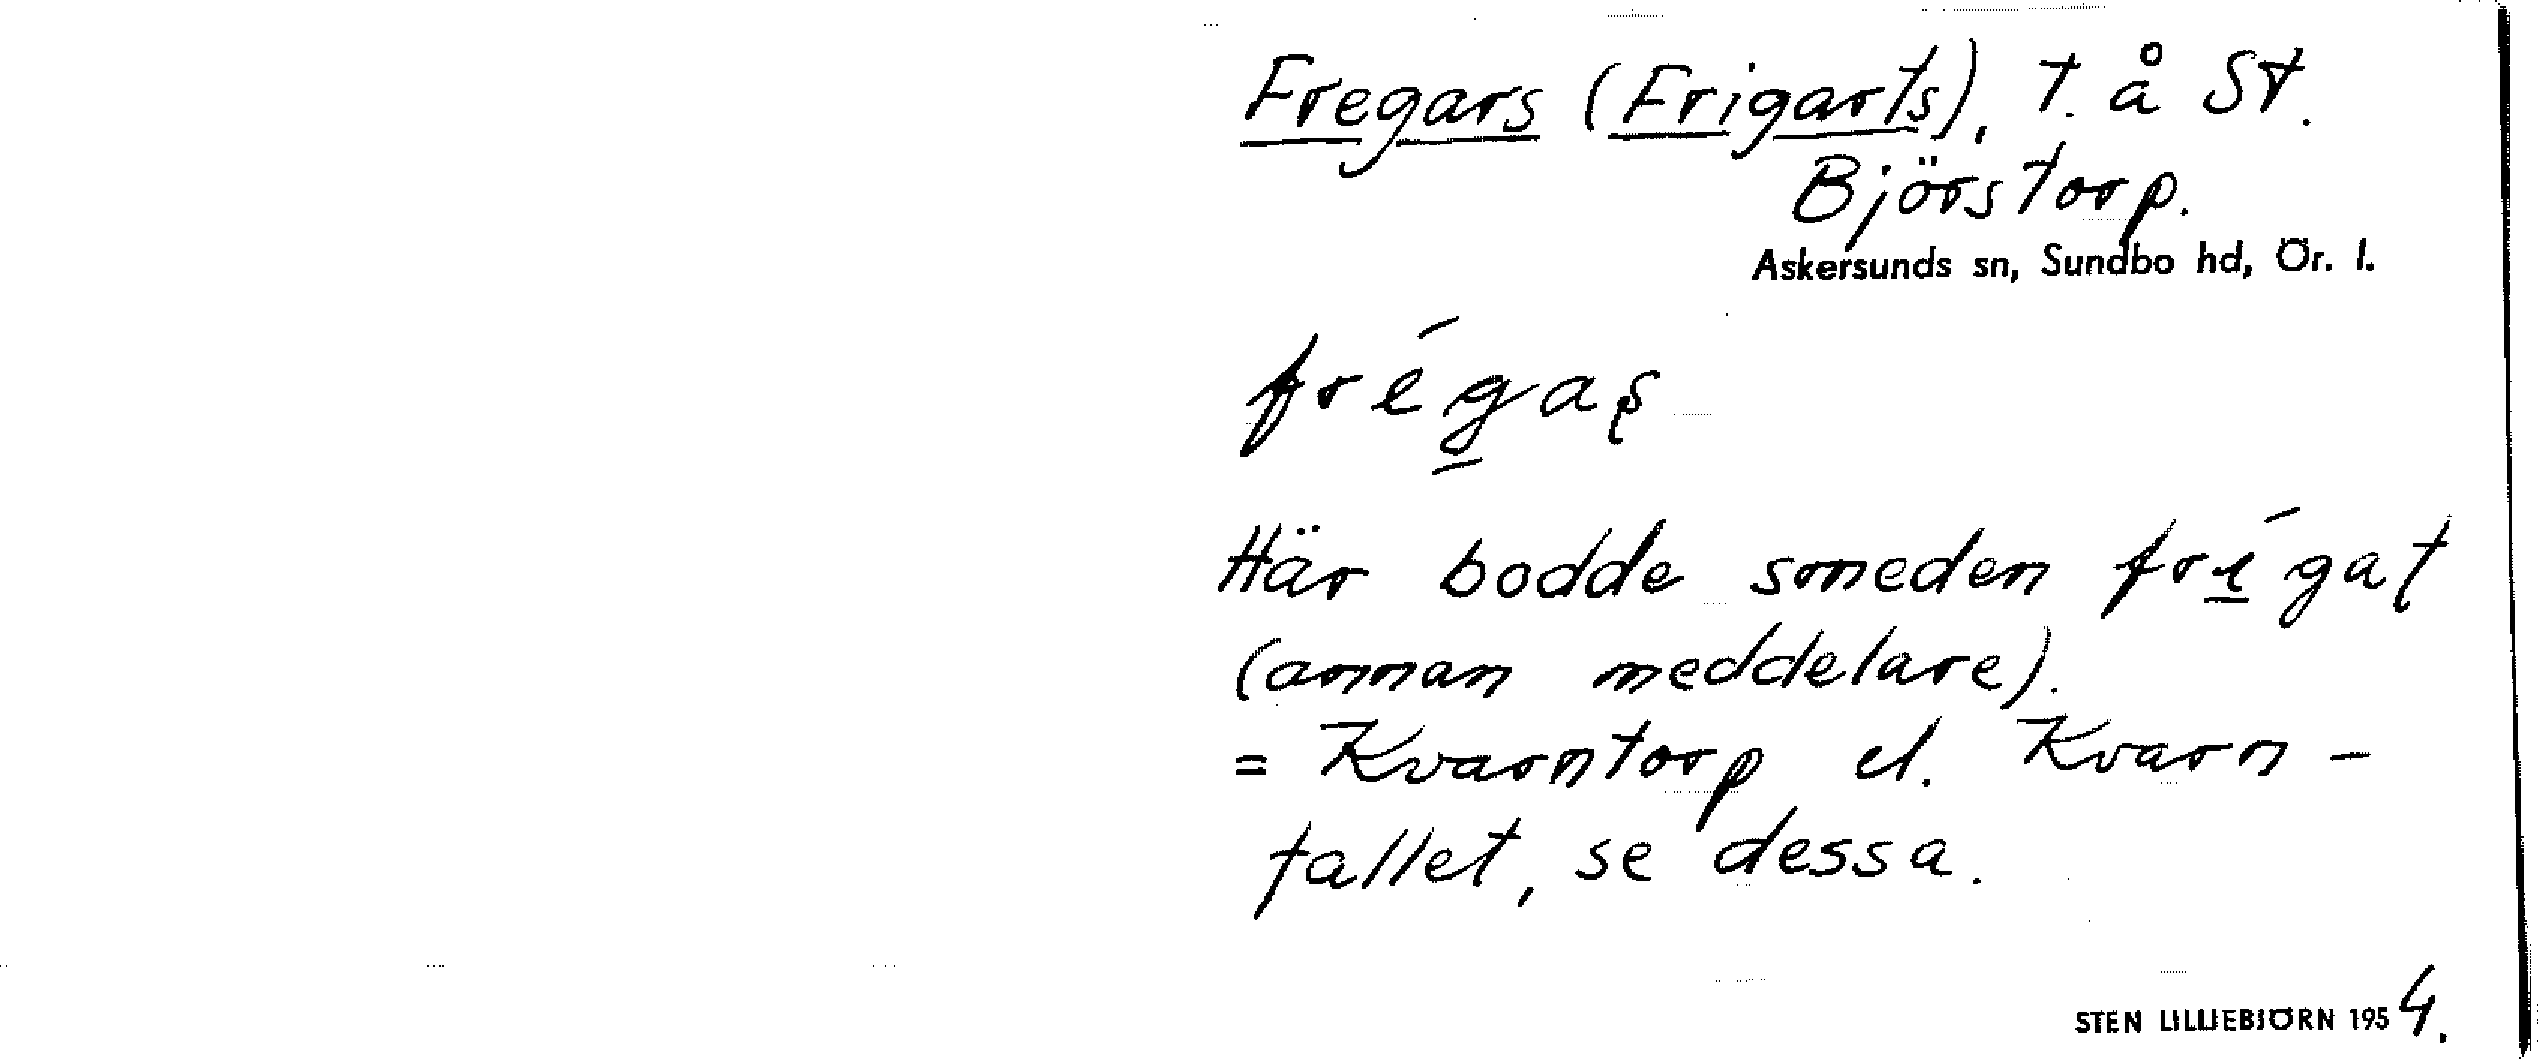 Fregars (Frigarts), t. å St.
Björstorp.
Askersunds sn, Sundbo hd, Ör. l.
frégas̨
Här bodde smeden frígat
(annan meddelare).
= Kvarntorp el. Kvarn-
fallet, se dessa.
STEN LILLIEBJÖRN 1954.